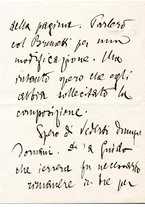 della pagina. Parlerò
col Brunati per una
modificazione. Ma
intanto spero che egli
abbia sollecitato la
composizione.
Spero di vederti dunque
domani. Di a Guido
che verrera fu necessario
rimanere in tre per